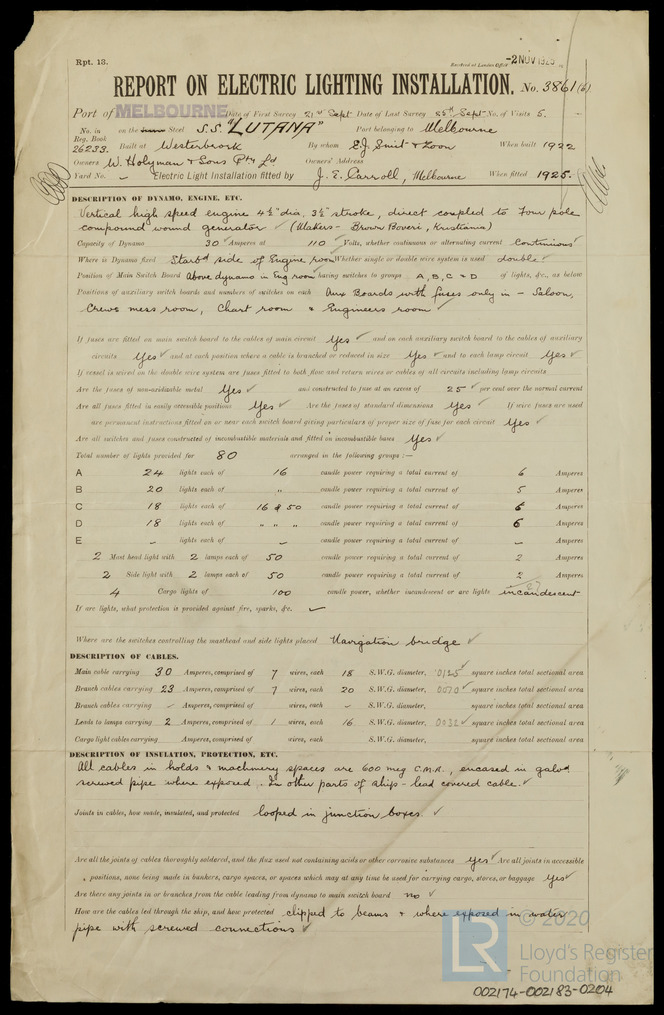 Rpt. 13.
Received at London Office -2 NOV 1925
REPORT ON ELECTRIC LIGHTING INSTALLATION. No. 3861 (b)
Port of MELBOURNE Date of First Survey 21st Sept Date of Last Survey Sept No. of Visits 5.
No. in Reg. Book on the Steel S.S. "LUTANA" Port belonging to Melbourne
26233. Built at Westerbroek By whom E.J. Smit & Zoon When built 1922
Owners W. Holyman & Sons Pty Ld Owners' Address
Yard No. – Electric Light Installation fitted by J. E. Carroll, Melbourne When fitted 1925.
DESCRIPTION OF DYNAMO, ENGINE, ETC.
Vertical high speed engine 4½" dia, 3½" stroke, direct coupled to Four pole
compound wound generator ✓ (Makers - Brown Boveri, Kristiania)
Capacity of Dynamo 30 Amperes at 110 Volts, whether continuous or alternating current Continuous ✓
Where is Dynamo fixed Starbd side of Engine room Whether single or double wire system is used double ✓
Position of Main Switch Board Above dynamo in Eng room having switches to groups A, B, C & D of lights, &c., as below
Positions of auxiliary switch boards and numbers of switches on each Aux Boards with fuses only in - Saloon,
Crews mess room, Chart room & Engineers room ✓
If fuses are fitted on main switch board to the cables of main circuit Yes ✓ and on each auxiliary switch board to the cables of auxiliary
circuits Yes ✓ and at each position where a cable is branched or reduced in size Yes ✓ and to each lamp circuit Yes ✓
If vessel is wired on the double wire system are fuses fitted to both flow and return wires or cables of all circuits including lamp circuits
Are the fuses of non-oxidizable metal Yes ✓ and constructed to fuse at an excess of 25 ✓ per cent over the normal current
Are all fuses fitted in easily accessible positions Yes ✓ Are the fuses of standard dimensions Yes ✓ If wire fuses are used
are permanent instructions fitted on or near each switch board giving particulars of proper size of fuse for each circuit Yes ✓
Are all switches and fuses constructed of incombustible materials and fitted on incombustible bases Yes ✓
Total number of lights provided for 80 arranged in the following groups :—
A 24 lights each of 16 candle power requiring a total current of 6 Amperes
B 20 lights each of " candle power requiring a total current of 5 Amperes
C 18 lights each of 16 & 50 candle power requiring a total current of 6 Amperes
D 18 lights each of " " " candle power requiring a total current of 6 Amperes
E – lights each of – candle power requiring a total current of – Amperes
2 Mast head light with 2 lamps each of 50 candle power requiring a total current of 2 Amperes
2 Side light with 2 lamps each of 50 candle power requiring a total current of 2 Amperes
4 Cargo lights of 100 candle power, whether incandescent or arc lights incandescent
If arc lights, what protection is provided against fire, sparks, &c. ✓
Where are the switches controlling the masthead and side lights placed Navigation bridge ✓
DESCRIPTION OF CABLES.
Main cable carrying 30 Amperes, comprised of 7 wires, each 18 S.W.G. diameter, ·0125 ✓ square inches total sectional area
Branch cables carrying 23 Amperes, comprised of 7 wires, each 20 S.W.G. diameter, ·0070 ✓ square inches total sectional area
Branch cables carrying – Amperes, comprised of – wires, each – S.W.G. diameter, square inches total sectional area
Leads to lamps carrying 2 Amperes, comprised of 1 wires, each 16 S.W.G. diameter, ·0032 ✓ square inches total sectional area
Cargo light cables carrying Amperes, comprised of wires, each S.W.G. diameter, square inches total sectional area
DESCRIPTION OF INSULATION, PROTECTION, ETC.
All cables in holds & machinery spaces are 600 meg C.M.A., encased in galvd
screwed pipe where exposed. In other parts of ship - lead covered cable. ✓
Joints in cables, how made, insulated, and protected looped in junction boxes. ✓
Are all the joints of cables thoroughly soldered, and the flux used not containing acids or other corrosive substances yes ✓ Are all joints in accessible
positions, none being made in bunkers, cargo spaces, or spaces which may at any time be used for carrying cargo, stores, or baggage Yes ✓
Are there any joints in or branches from the cable leading from dynamo to main switch board no ✓
How are the cables led through the ship, and how protected clipped to beams & where exposed in water
pipe with screwed connections ✓
© 2020
LR Lloyd's Register
Foundation
002174-002183-0204